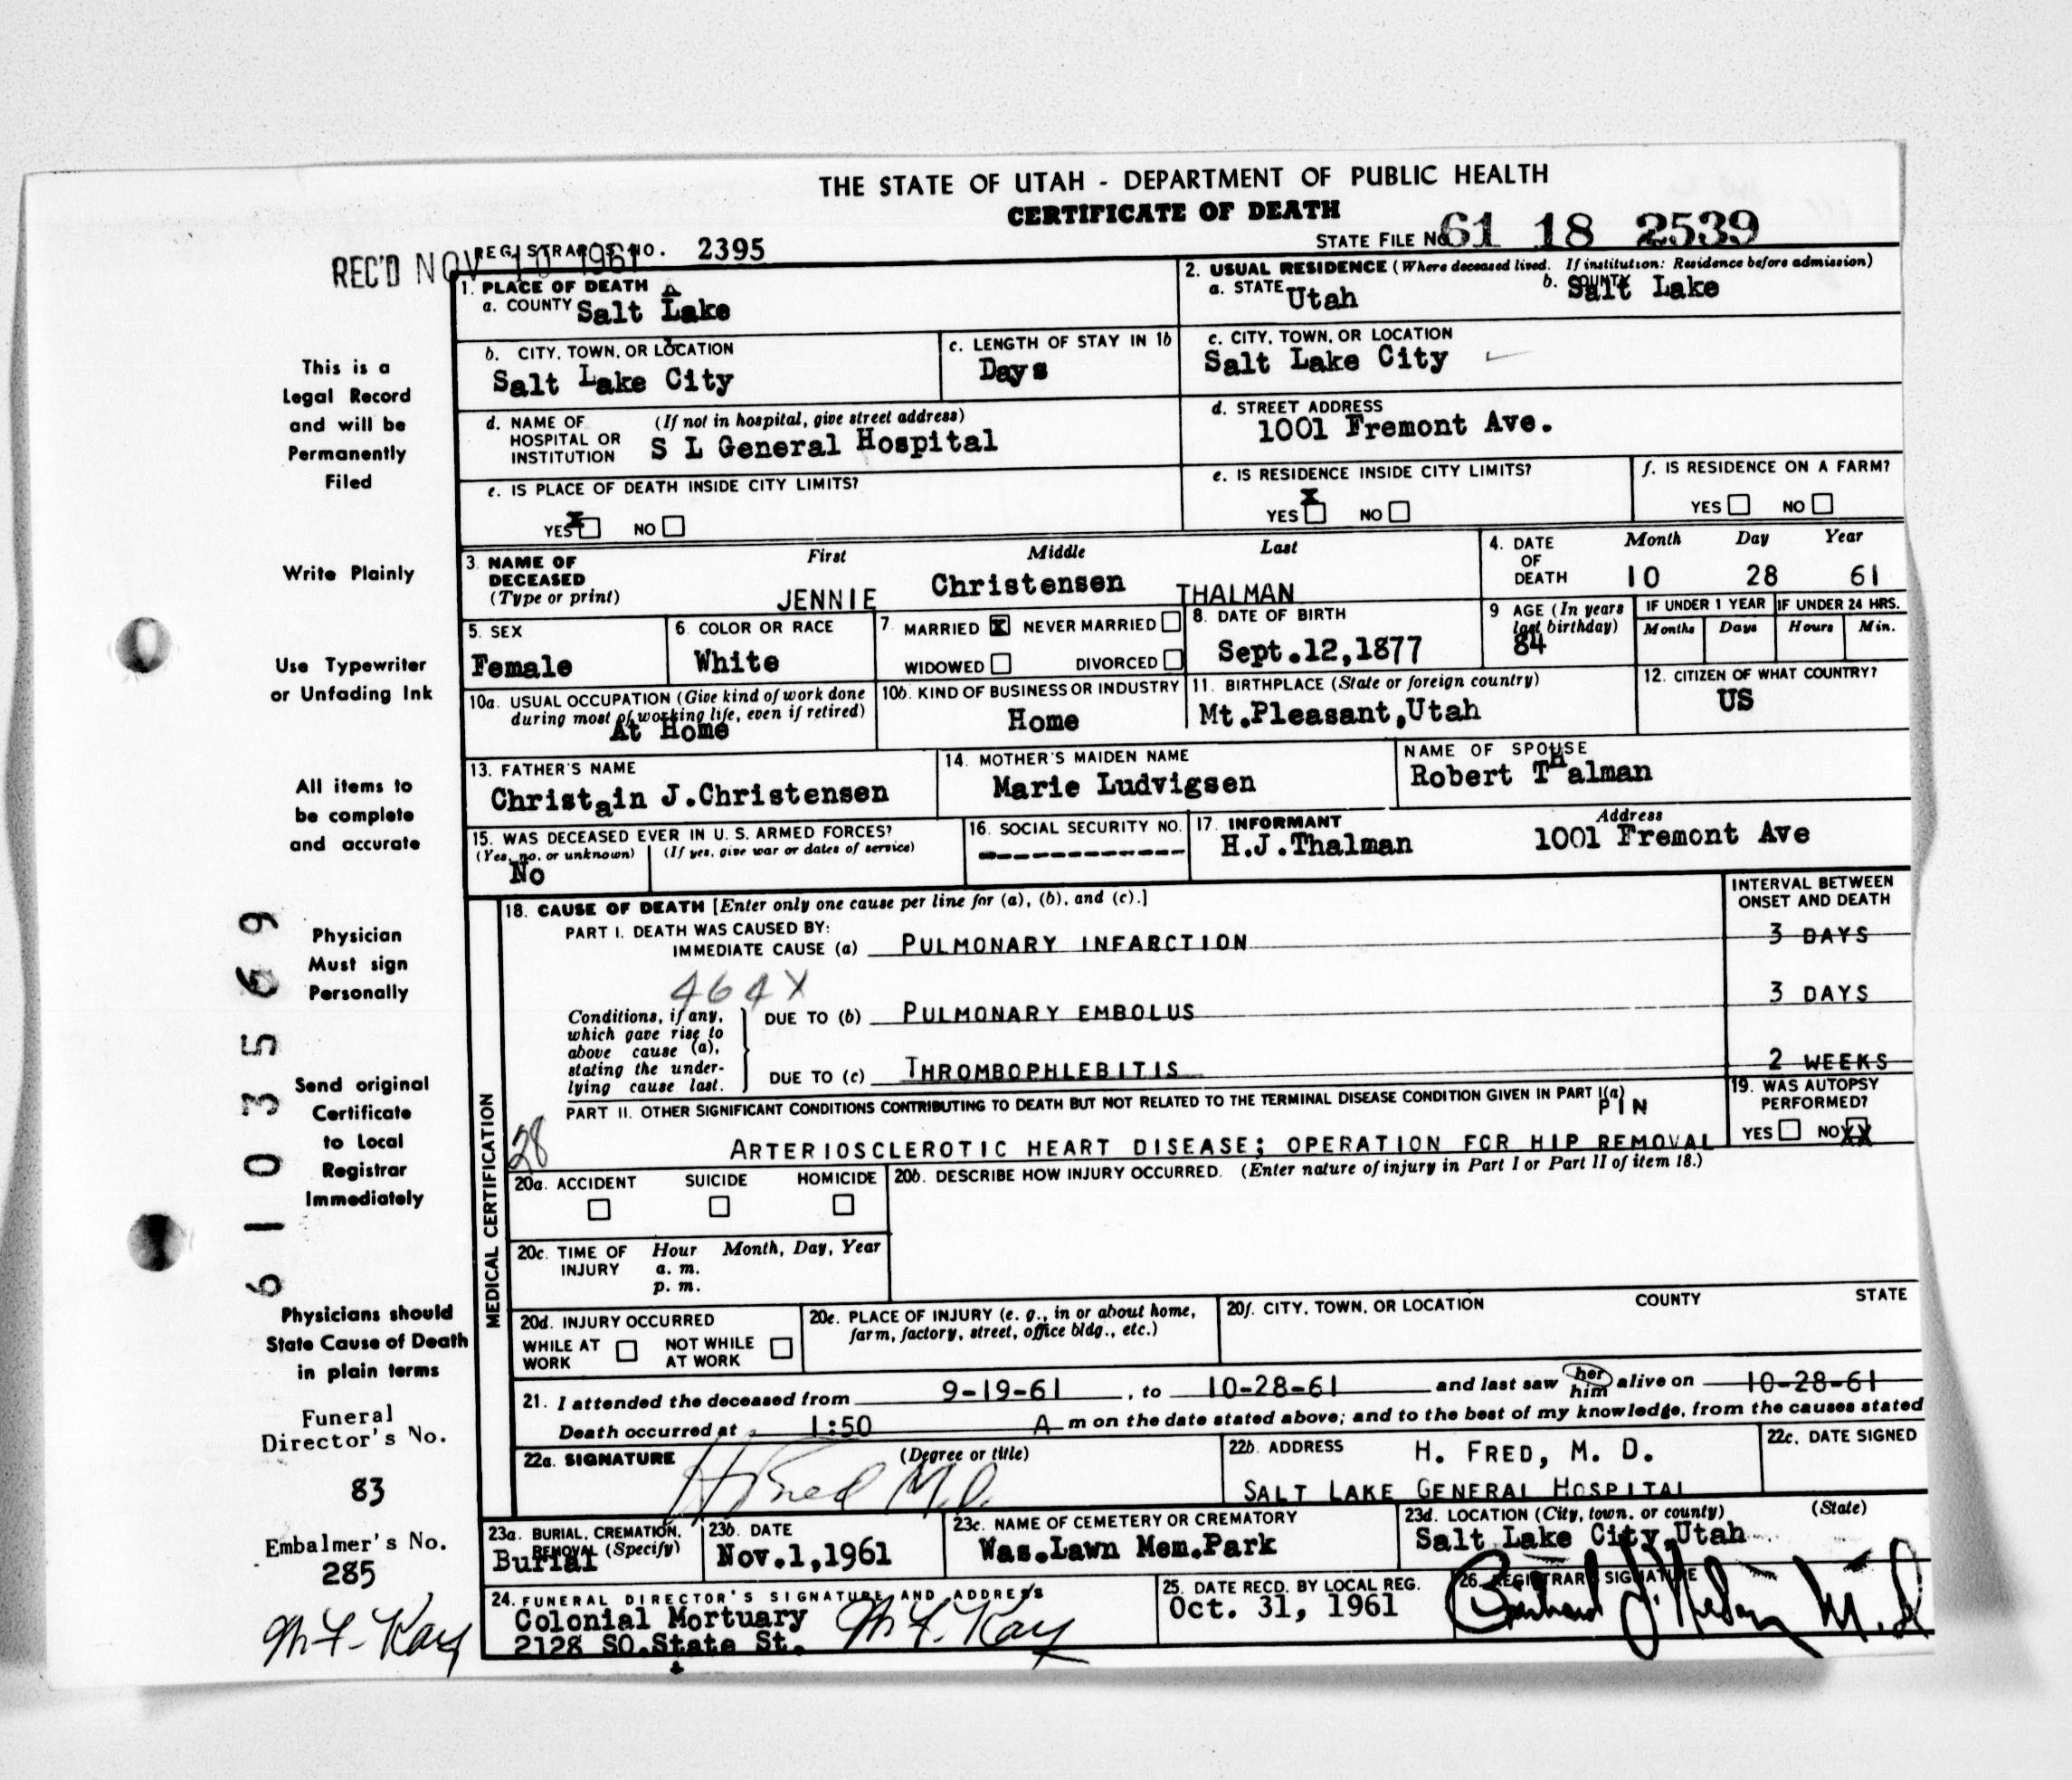 THE STATE OF UTAH - DEPARTMENT OF PUBLIC HEALTH
CERTIFICATE OF DEATH
REC'D NOV 10 1961
REGISTRAR'S NO. 2395
STATE FILE NO. 61 18 2539
1. PLACE OF DEATH
a. COUNTY Salt Lake
2. USUAL RESIDENCE (Where deceased lived. If institution: Residence before admission)
a. STATE Utah
b. COUNTY Salt Lake
b. CITY, TOWN, OR LOCATION
Salt Lake City
c. LENGTH OF STAY IN 1b
Days
c. CITY, TOWN, OR LOCATION
Salt Lake City
d. NAME OF HOSPITAL OR INSTITUTION (If not in hospital, give street address)
S L General Hospital
d. STREET ADDRESS
1001 Fremont Ave.
e. IS PLACE OF DEATH INSIDE CITY LIMITS?
YES X NO
e. IS RESIDENCE INSIDE CITY LIMITS?
YES X NO
f. IS RESIDENCE ON A FARM?
YES NO
3. NAME OF DECEASED (Type or print)
First Middle Last
JENNIE Christensen THALMAN
4. DATE OF DEATH
Month Day Year
10 28 61
5. SEX
Female
6. COLOR OR RACE
White
7. MARRIED X NEVER MARRIED
WIDOWED DIVORCED
8. DATE OF BIRTH
Sept.12,1877
9 AGE (In years last birthday)
84
IF UNDER 1 YEAR
Months Days
IF UNDER 24 HRS.
Hours Min.
10a. USUAL OCCUPATION (Give kind of work done during most of working life, even if retired)
At Home
10b. KIND OF BUSINESS OR INDUSTRY
Home
11. BIRTHPLACE (State or foreign country)
Mt.Pleasant,Utah
12. CITIZEN OF WHAT COUNTRY?
US
13. FATHER'S NAME
Christain J.Christensen
14. MOTHER'S MAIDEN NAME
Marie Ludvigsen
NAME OF SPOUSE
Robert THalman
15. WAS DECEASED EVER IN U. S. ARMED FORCES?
(Yes, no. or unknown) (If yes, give war or dates of service)
No
16. SOCIAL SECURITY NO.
17. INFORMANT Address
H.J.Thalman 1001 Fremont Ave
MEDICAL CERTIFICATION
18. CAUSE OF DEATH [Enter only one cause per line for (a), (b), and (c).]
INTERVAL BETWEEN ONSET AND DEATH
PART I. DEATH WAS CAUSED BY:
IMMEDIATE CAUSE (a) PULMONARY INFARCTION 3 DAYS
464X
Conditions, if any, which gave rise to above cause (a), stating the underlying cause last.
DUE TO (b) PULMONARY EMBOLUS 3 DAYS
DUE TO (c) THROMBOPHLEBITIS 2 WEEKS
PART II. OTHER SIGNIFICANT CONDITIONS CONTRIBUTING TO DEATH BUT NOT RELATED TO THE TERMINAL DISEASE CONDITION GIVEN IN PART I(a)
PIN
28
ARTERIOSCLEROTIC HEART DISEASE; OPERATION FOR HIP REMOVAL
19. WAS AUTOPSY PERFORMED?
YES NO XX
20a. ACCIDENT SUICIDE HOMICIDE
20b. DESCRIBE HOW INJURY OCCURRED. (Enter nature of injury in Part I or Part II of item 18.)
20c. TIME OF INJURY Hour Month, Day, Year
a. m.
p. m.
20d. INJURY OCCURRED
WHILE AT WORK NOT WHILE AT WORK
20e. PLACE OF INJURY (e. g., in or about home, farm, factory, street, office bldg., etc.)
20f. CITY, TOWN, OR LOCATION COUNTY STATE
21. I attended the deceased from 9-19-61, to 10-28-61 and last saw her him alive on 10-28-61
Death occurred at 1:50 A m on the date stated above; and to the best of my knowledge, from the causes stated
22a. SIGNATURE (Degree or title)
H Fred M.D.
22b. ADDRESS H. FRED, M. D.
SALT LAKE GENERAL HOSPITAL
22c. DATE SIGNED
23a. BURIAL, CREMATION, REMOVAL (Specify)
Burial
23b. DATE
Nov.1,1961
23c. NAME OF CEMETERY OR CREMATORY
Was.Lawn Mem.Park
23d. LOCATION (City, town. or county) (State)
Salt Lake City,Utah
24. FUNERAL DIRECTOR'S SIGNATURE AND ADDRESS
Colonial Mortuary
2128 SO.State St.
25. DATE RECD. BY LOCAL REG.
Oct. 31, 1961
26. REGISTRAR'S SIGNATURE
This is a
Legal Record
and will be
Permanently
Filed
Write Plainly
Use Typewriter
or Unfading Ink
All items to
be complete
and accurate
Physician
Must sign
Personally
Send original
Certificate
to Local
Registrar
Immediately
Physicians should
State Cause of Death
in plain terms
Funeral
Director's No.
83
Embalmer's No.
285
61035569